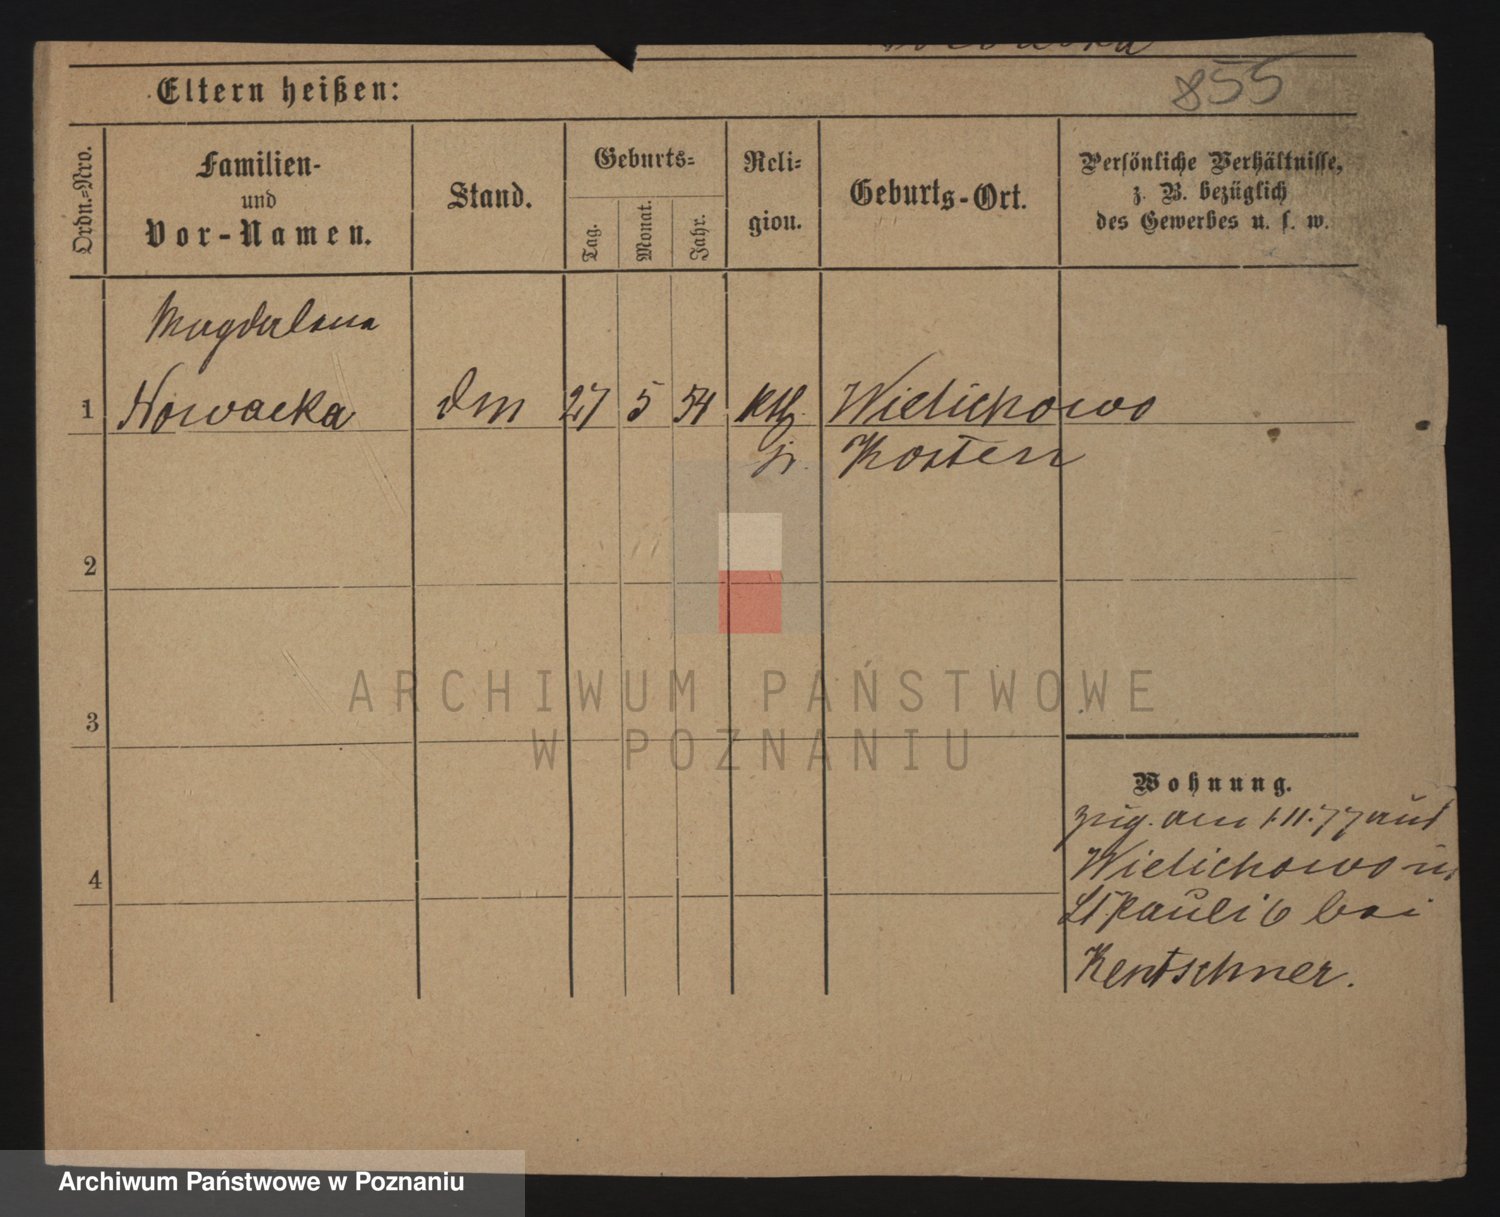 855
Eltern heißen:
Ordn.=Nro.
Familien-
und
Vor-Namen.
Stand.
Geburts=
Tag.
Monat.
Jahr.
Reli=
gion.
Geburts-Ort.
Persönliche Verhältnisse,
z. B. bezüglich
des Gewerbes u. s. w.
Magdalena
1 Nowacka dm 27 5 54 kth. Wielichowo
Kosten
2
3
4
Wohnung.
zug. am 1.11.77 aus
Wielichowo u.
St Pauli 6 bei
Kentschner.
ARCHIWUM PAŃSTWOWE
W POZNANIU
Archiwum Państwowe w Poznaniu